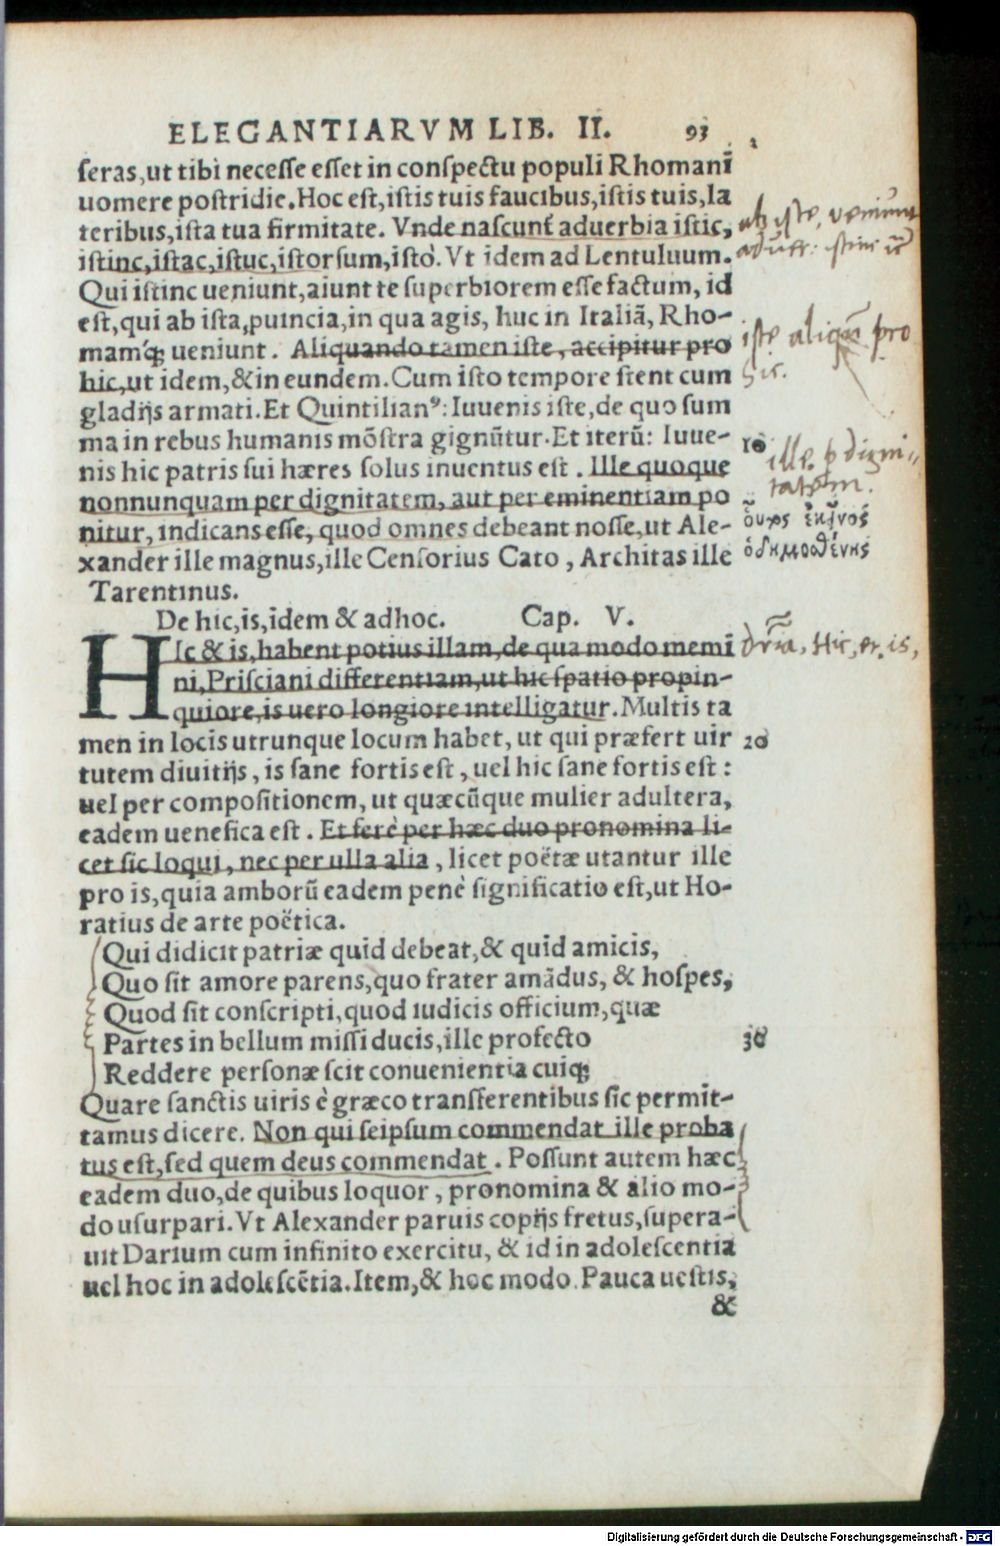 ELEGANTIARVM LIB. II. 93
seras,ut tibi necesse esset in conspectu populi Rhomanī
uomere postridie. Hoc est,istis tuis faucibus,istis tuis,la
teribus,ista tua firmitate. Vnde nascunt́ aduerbia istic,
istinc,istac,istuc,istorsum,istò. Vt idem ad Lentuluum.
Qui istinc ueniunt,aiunt te superbiorem esse factum, id
est,qui ab ista,ꝓuincia,in qua agis, huc in Italiã, Rho-
mamq́ꝫ ueniunt. Aliquando tamen iste, accipitur pro
hic,ut idem,&in eundem. Cum isto tempore stent cum
gladijs armati. Et Quintilianꝰ: Iuuenis iste,de quo sum
ma in rebus humanis mõstra gignũtur. Et iterũ: Iuue-
nis hic patris sui hæres solus inuentus est. Ille quoque
nonnunquam per dignitatem, aut per eminentiam po
nitur, indicans esse, quod omnes debeant nosse,ut Ale-
xander ille magnus,ille Censorius Cato, Architas ille
Tarentinus.
De hic,is,idem & adhoc. Cap. V.
HIc & is,habent potius illam,de qua modo memī
ni,Prisciani differentiam,ut hic spatio propin-
quiore,is uero longiore intelligatur. Multis ta
men in locis utrunque locum habet, ut qui præfert uir
tutem diuitijs, is sane fortis est, uel hic sane fortis est:
uel per compositionem, ut quæcũque mulier adultera,
eadem uenefica est. Et ferè per hæc duo pronomina li-
cet sic loqui, nec per ulla alia, licet poëtæ utantur ille
pro is,quia amborũ eadem penè significatio est,ut Ho-
ratius de arte poëtica.
Qui didicit patriæ quid debeat,& quid amicis,
Quo sit amore parens,quo frater amãdus, & hospes,
Quod sit conscripti,quod iudicis officium,quæ
Partes in bellum missi ducis,ille profecto
Reddere personæ scit conuenientia cuiqꝫ
Quare sanctis uiris è græco transferentibus sic permit-
tamus dicere. Non qui seipsum commendat ille proba
tus est,sed quem deus commendat. Possunt autem hæc
eadem duo,de quibus loquor, pronomina & alio mo-
do usurpari. Vt Alexander paruis copijs fretus,supera-
uit Darium cum infinito exercitu, & id in adolescentia
uel hoc in adolescẽtia. Item,& hoc modo. Pauca uestis,
&
ab iste, veniunt
iste aliqñ pro
hic.
10
ille p digni-
tatem.
ὁ δημοσθένης
Hic, et. is,
20
30
Digitalisierung gefördert durch die Deutsche Forschungsgemeinschaft - DFG